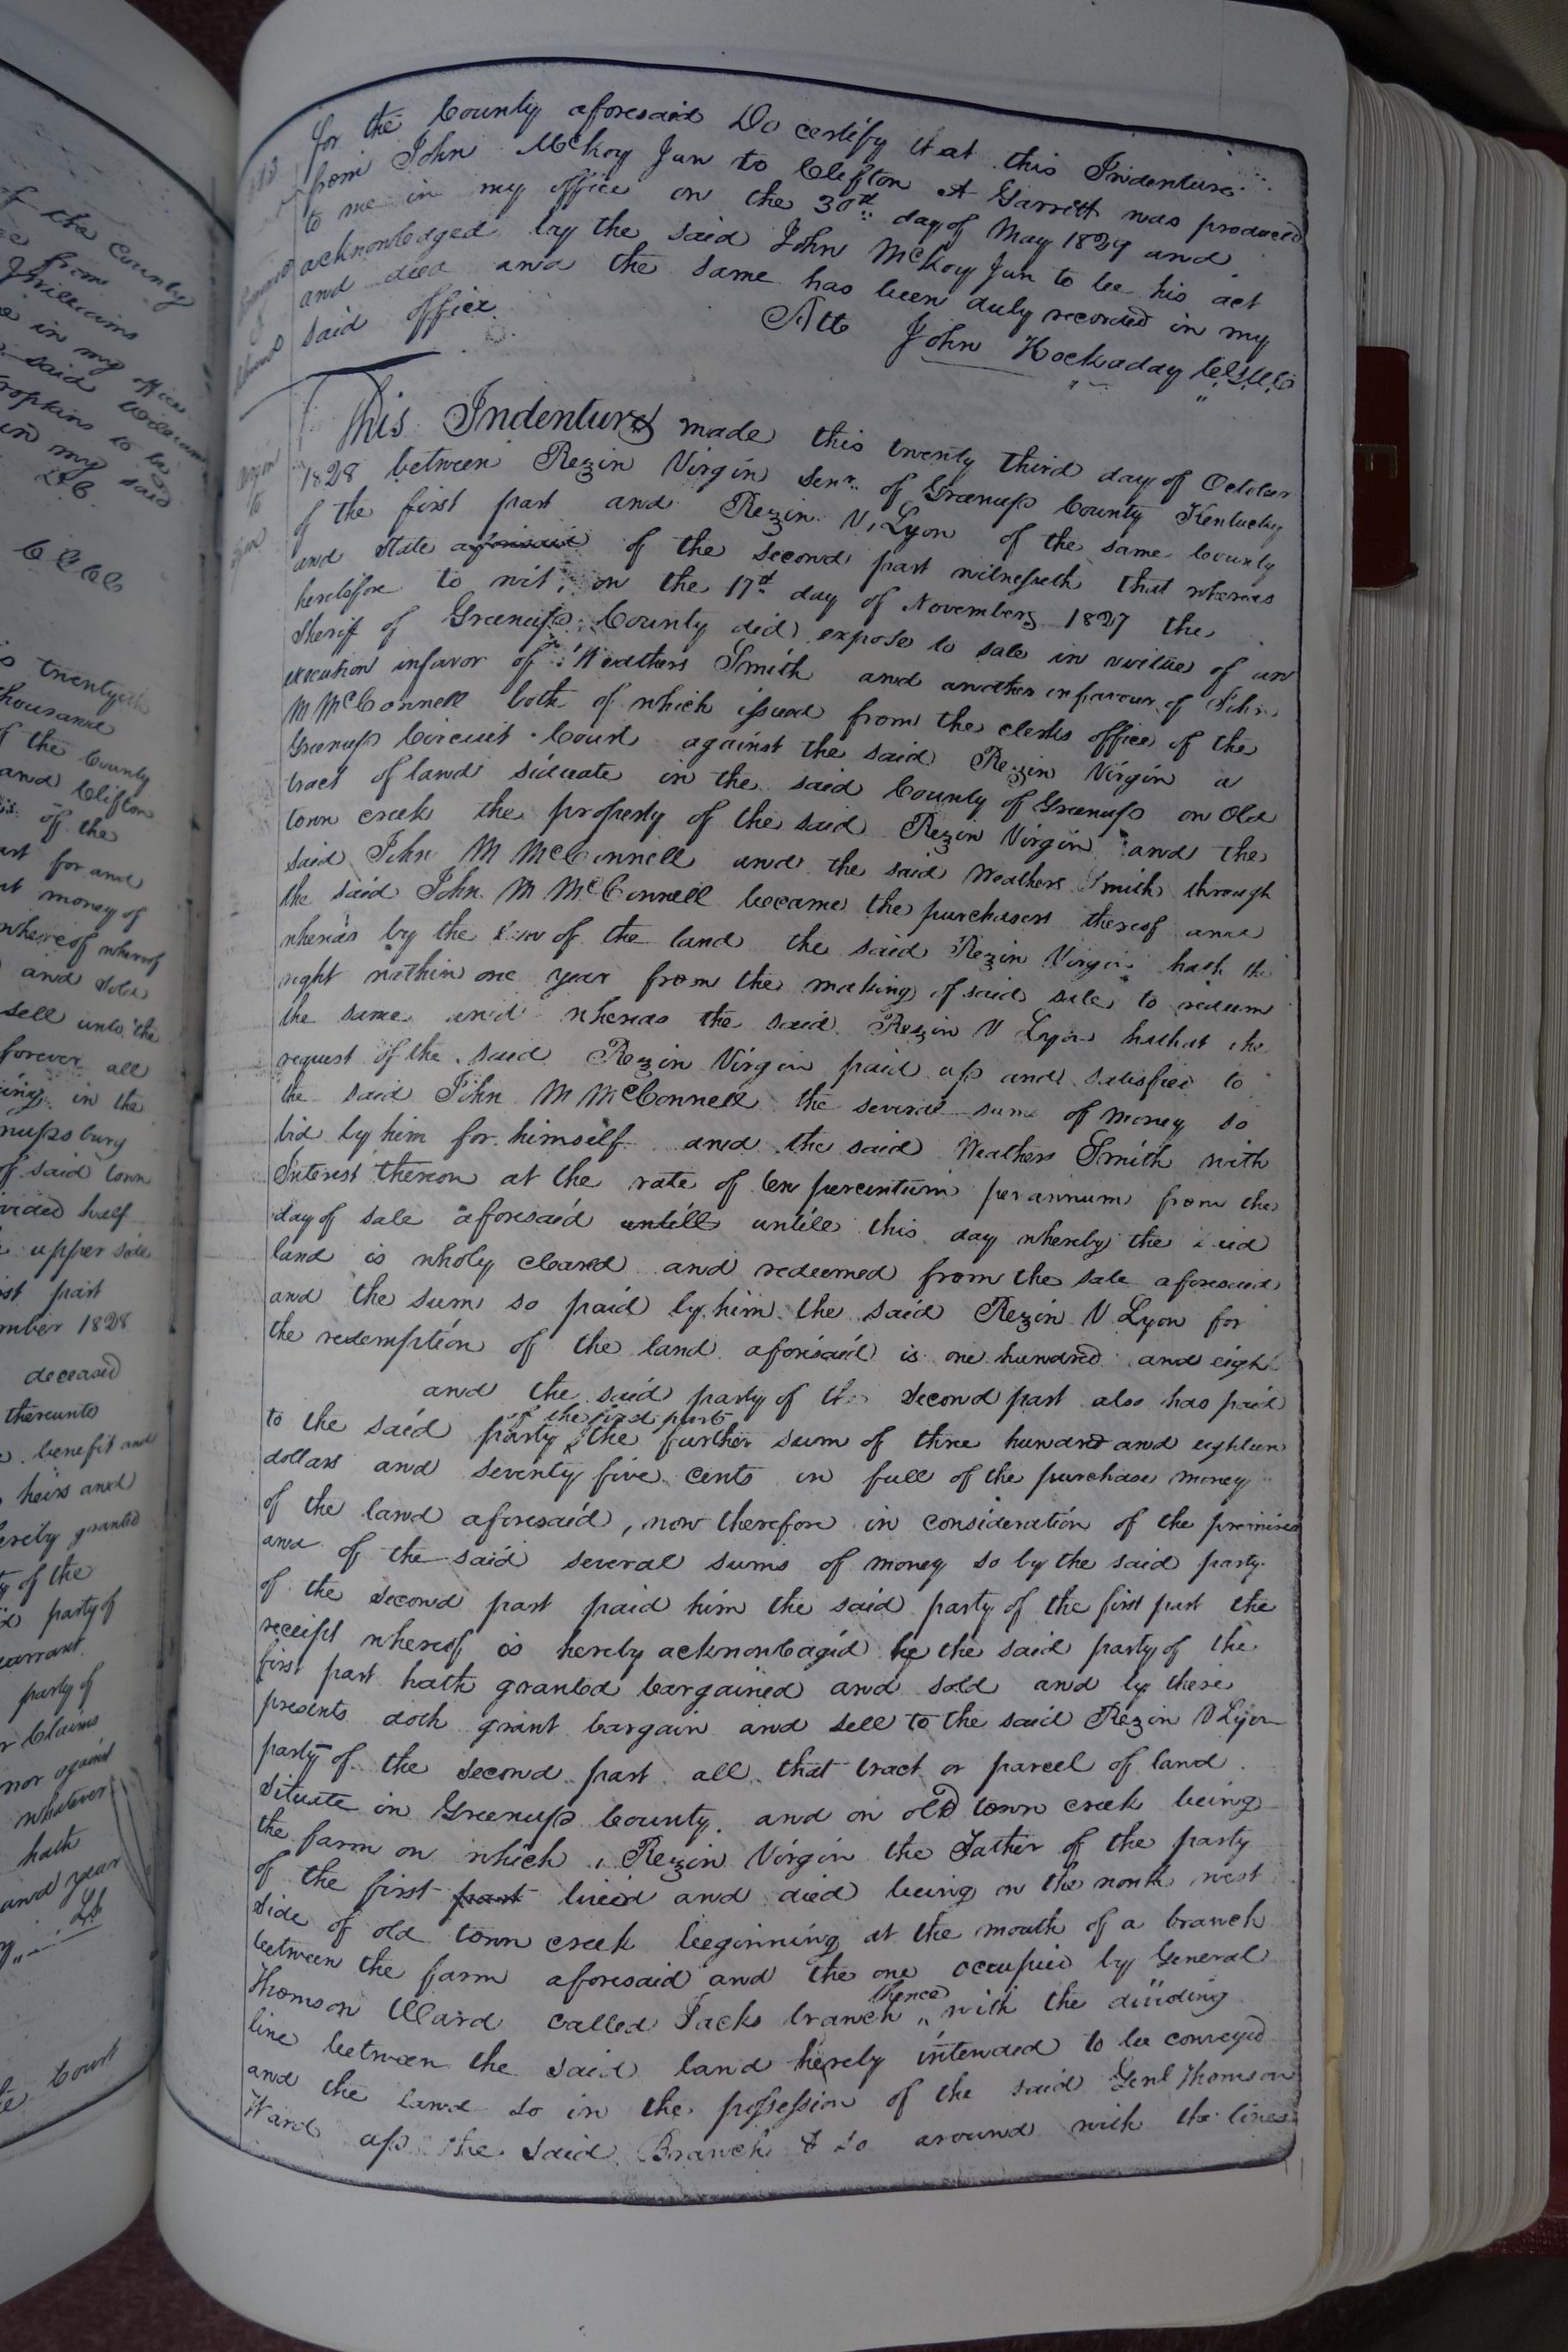 of the County
from
Williams
in my office
said William
Hopkins to be
in my said
twentyeth
thousand
of the County
and Clifton
of the
part for and
money of
whereof whereof
and Sold
sell unto the
forever all
in the
of said town
half
upper side
part
1828
deceased
thereunto
benefit and
heirs and
hereby granted
of the
party of
warrant
party of
Claims
nor against
whatever
hath
and year
Court
for the County aforesaid Do certify that this Indenture
from John McKoy Jun to Clifton A Garrett was produced
to me in my office on the 30th day of May 1829 and
acknowledged by the said John McKoy Jun to be his act
and deed and the same has been duly recorded in my
said office.
Att John Hockaday
Virgin
to
This Indenture made this twenty third day of October
1828 between Rezin Virgin Senr. of Greenup County Kentucky
of the first part and Rezin V, Lyon of the same County
and State aforesaid of the second part witnesseth that whereas
heretofore to wit, on the 17th day of November 1827 the
Sheriff of Greenup County did expose to sale in virtue of an
execution infavor of Weathers Smith and another infavour of John
M McConnell both of which issued from the clerks office of the
Greenup Circuit Court against the said Rezin Virgin a
tract of land situate in the said County of Greenup on Old
town creek the property of the said Rezin Virgin and the
said John M McConnell and the said Weathers Smith through
the said John M McConnell became the purchasers thereof and
whereas by the of the land the said Rezin Virgin hath the
right within one year from the making of said sale to redeem
the same and whereas the said Rezin V Lyon hathat the
request of the said Rezin Virgin paid up and satisfied to
the said John M McConnell the several sums of money so
bid by him for himself and the said Weathers Smith with
Interest thereon at the rate of ten percentum per annum from the
day of sale aforesaid untill untile this day whereby the said
land is wholy cleared and redeemed from the sale aforesaid
and the sum so paid by him the said Rezin V Lyon for
the redemption of the land aforesaid is one hundred and eight
and the said party of the Second part also has paid
to the said party of the first part the further sum of three hundred and eighteen
dollars and seventy five cents in full of the purchase money
of the land aforesaid, now therefore in consideration of the premises
and of the said several sums of money so by the said party
of the second part paid him the said party of the first part the
receipt whereof is hereby acknowledged he the said party of the
first part hath granted bargained and sold and by these
presents doth grant bargain and sell to the said Rezin V Lyon
party of the second part all that tract or parcel of land
situate in Greenup County. and on old town creek being
the farm on which Rezin Virgin the Father of the party
of the first part lived and died being on the north west
side of old town creek beginning at the mouth of a branch
between the farm aforesaid and the one occupied by General
Thomson Ward called Jacks branch thence with the dividing
line between the said land hereby intended to be conveyed
and the land so in the possession of the said Genl Thomson
Ward up the said Branch & so around with the lines